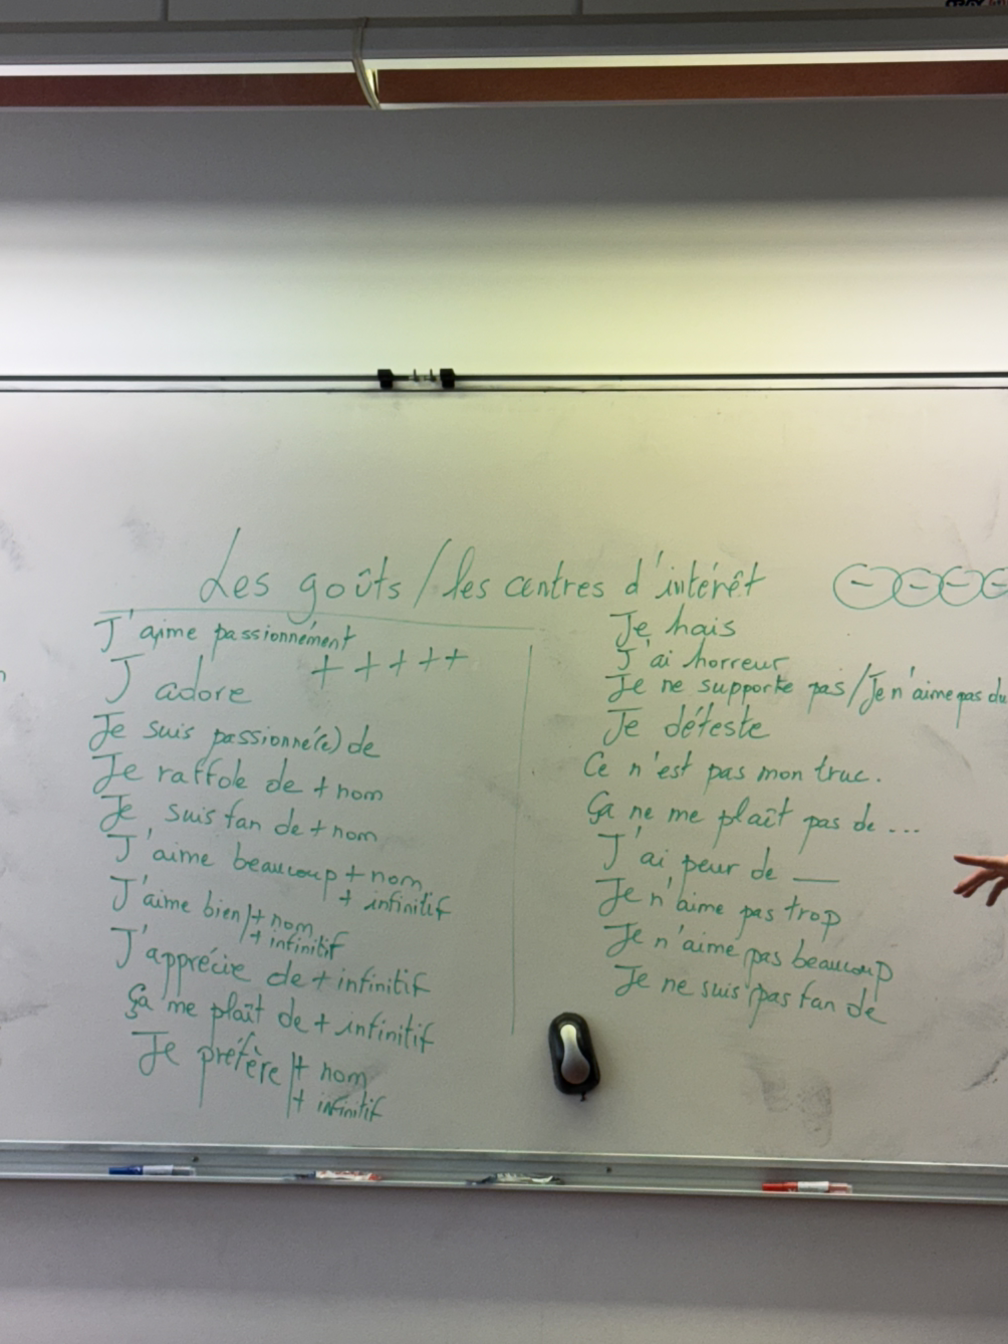 Les goûts / les centres d'intérêt
J'aime passionnément
+ + + + +
J'adore
Je suis passionné(e) de
Je raffole de + nom
Je suis fan de + nom
J'aime beaucoup + nom
+ infinitif
J'aime bien + nom
+ infinitif
J'apprécie de + infinitif
Ça me plaît de + infinitif
Je préfère + nom
+ infinitif
- - - -
Je hais
J'ai horreur
Je ne supporte pas / Je n'aime pas du
Je déteste
Ce n'est pas mon truc.
Ça ne me plaît pas de ...
J'ai peur de __
Je n'aime pas trop
Je n'aime pas beaucoup
Je ne suis pas fan de